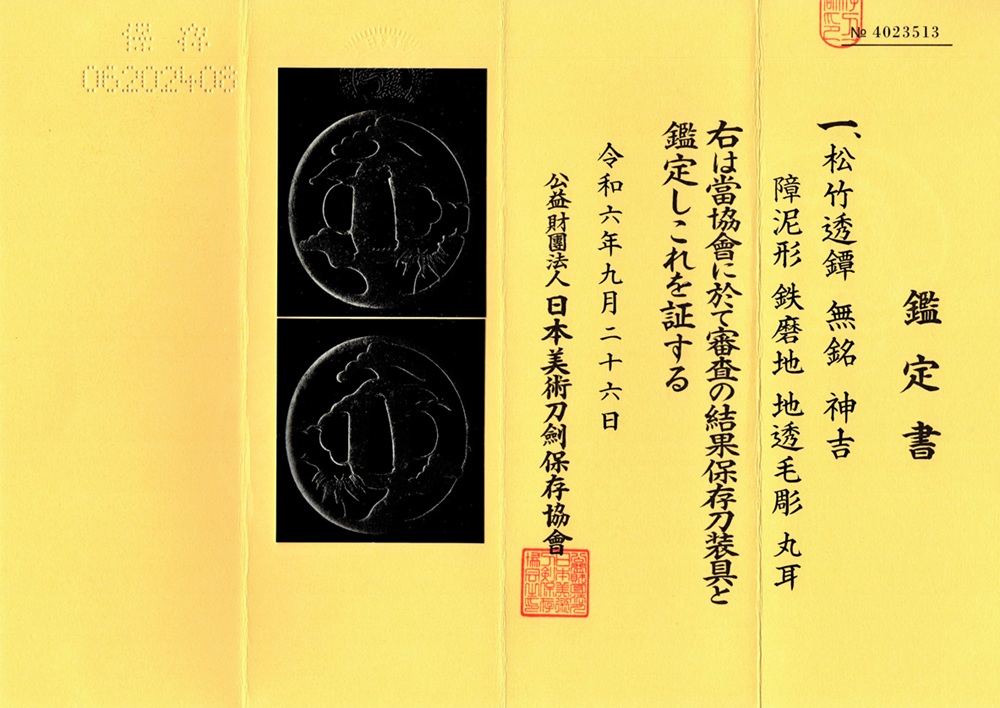 № 4023513
鑑定書
一、松竹透鐔 無銘 神吉
障泥形 鉄磨地 地透毛彫 丸耳
右は當協會に於て審査の結果保存刀装具と
鑑定しこれを証する
令和六年九月二十六日
公益財團法人 日本美術刀劍保存協會
保存
06202408